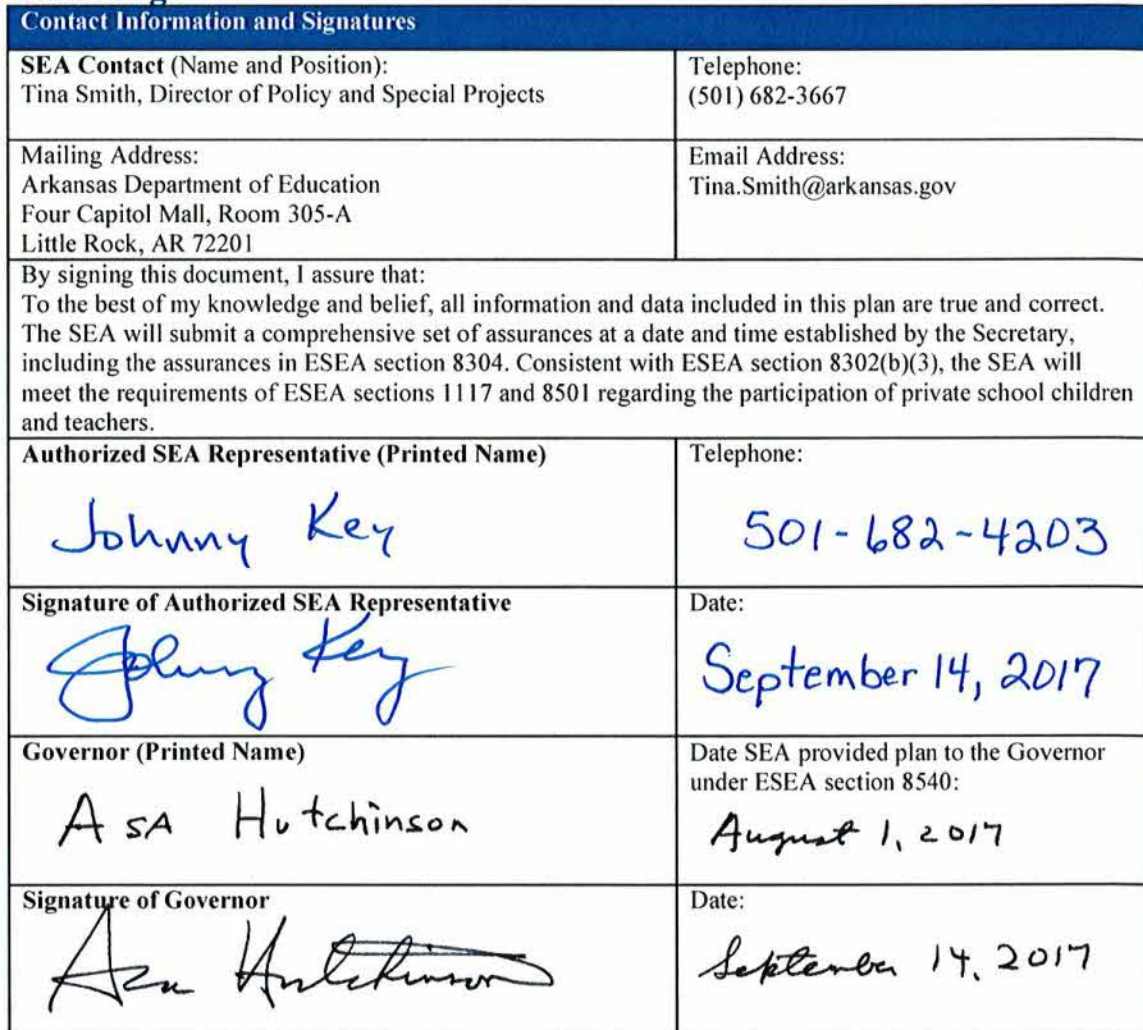 Contact Information and Signatures
SEA Contact (Name and Position):
Tina Smith, Director of Policy and Special Projects
Telephone:
(501) 682-3667
Mailing Address:
Arkansas Department of Education
Four Capitol Mall, Room 305-A
Little Rock, AR 72201
Email Address:
Tina.Smith@arkansas.gov
By signing this document, I assure that:
To the best of my knowledge and belief, all information and data included in this plan are true and correct.
The SEA will submit a comprehensive set of assurances at a date and time established by the Secretary,
including the assurances in ESEA section 8304. Consistent with ESEA section 8302(b)(3), the SEA will
meet the requirements of ESEA sections 1117 and 8501 regarding the participation of private school children
and teachers.
Authorized SEA Representative (Printed Name)
Johnny Key
Telephone:
501-682-4203
Signature of Authorized SEA Representative
Johnny Key
Date:
September 14, 2017
Governor (Printed Name)
Asa Hutchinson
Date SEA provided plan to the Governor
under ESEA section 8540:
August 1, 2017
Signature of Governor
Asa Hutchinson
Date:
September 14, 2017